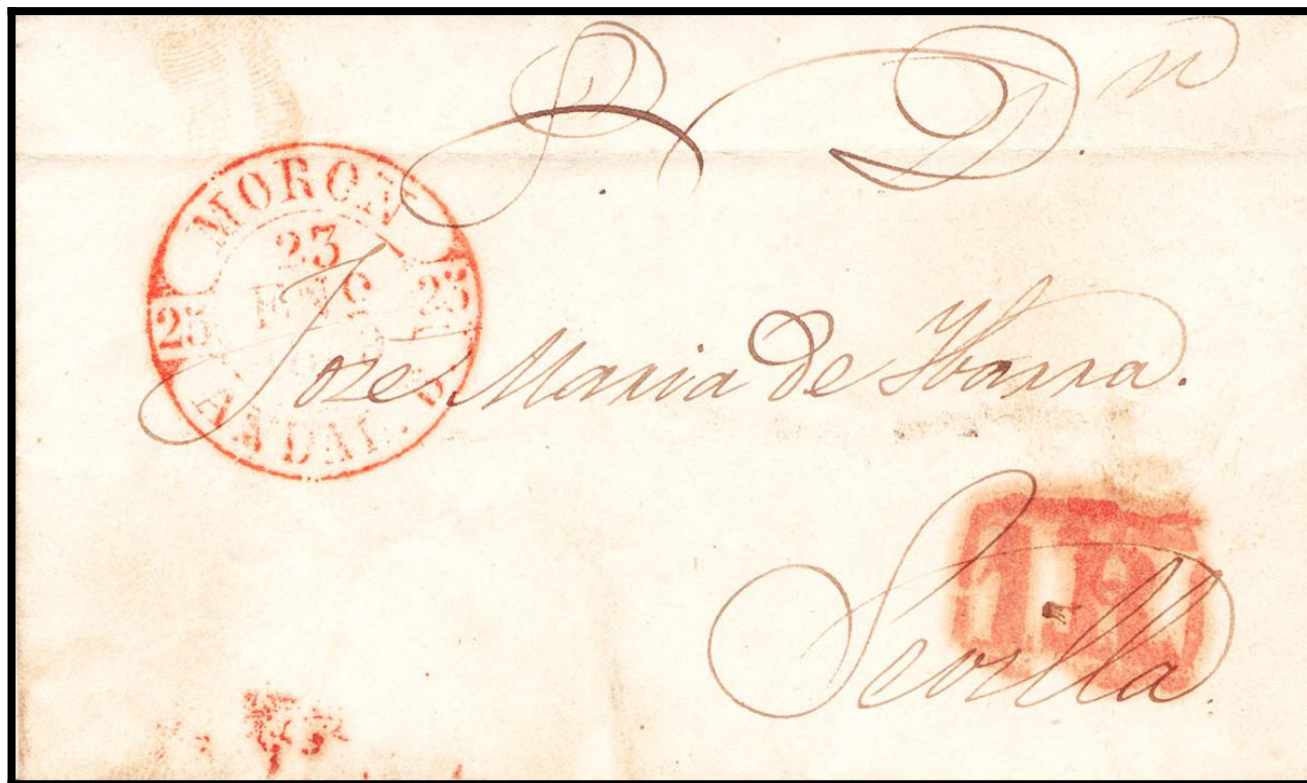 S. Dⁿ.
MORON
23
ENE
25
25
ANDAL. B.
Jose Maria de Ybarra.
1R
Sevilla.